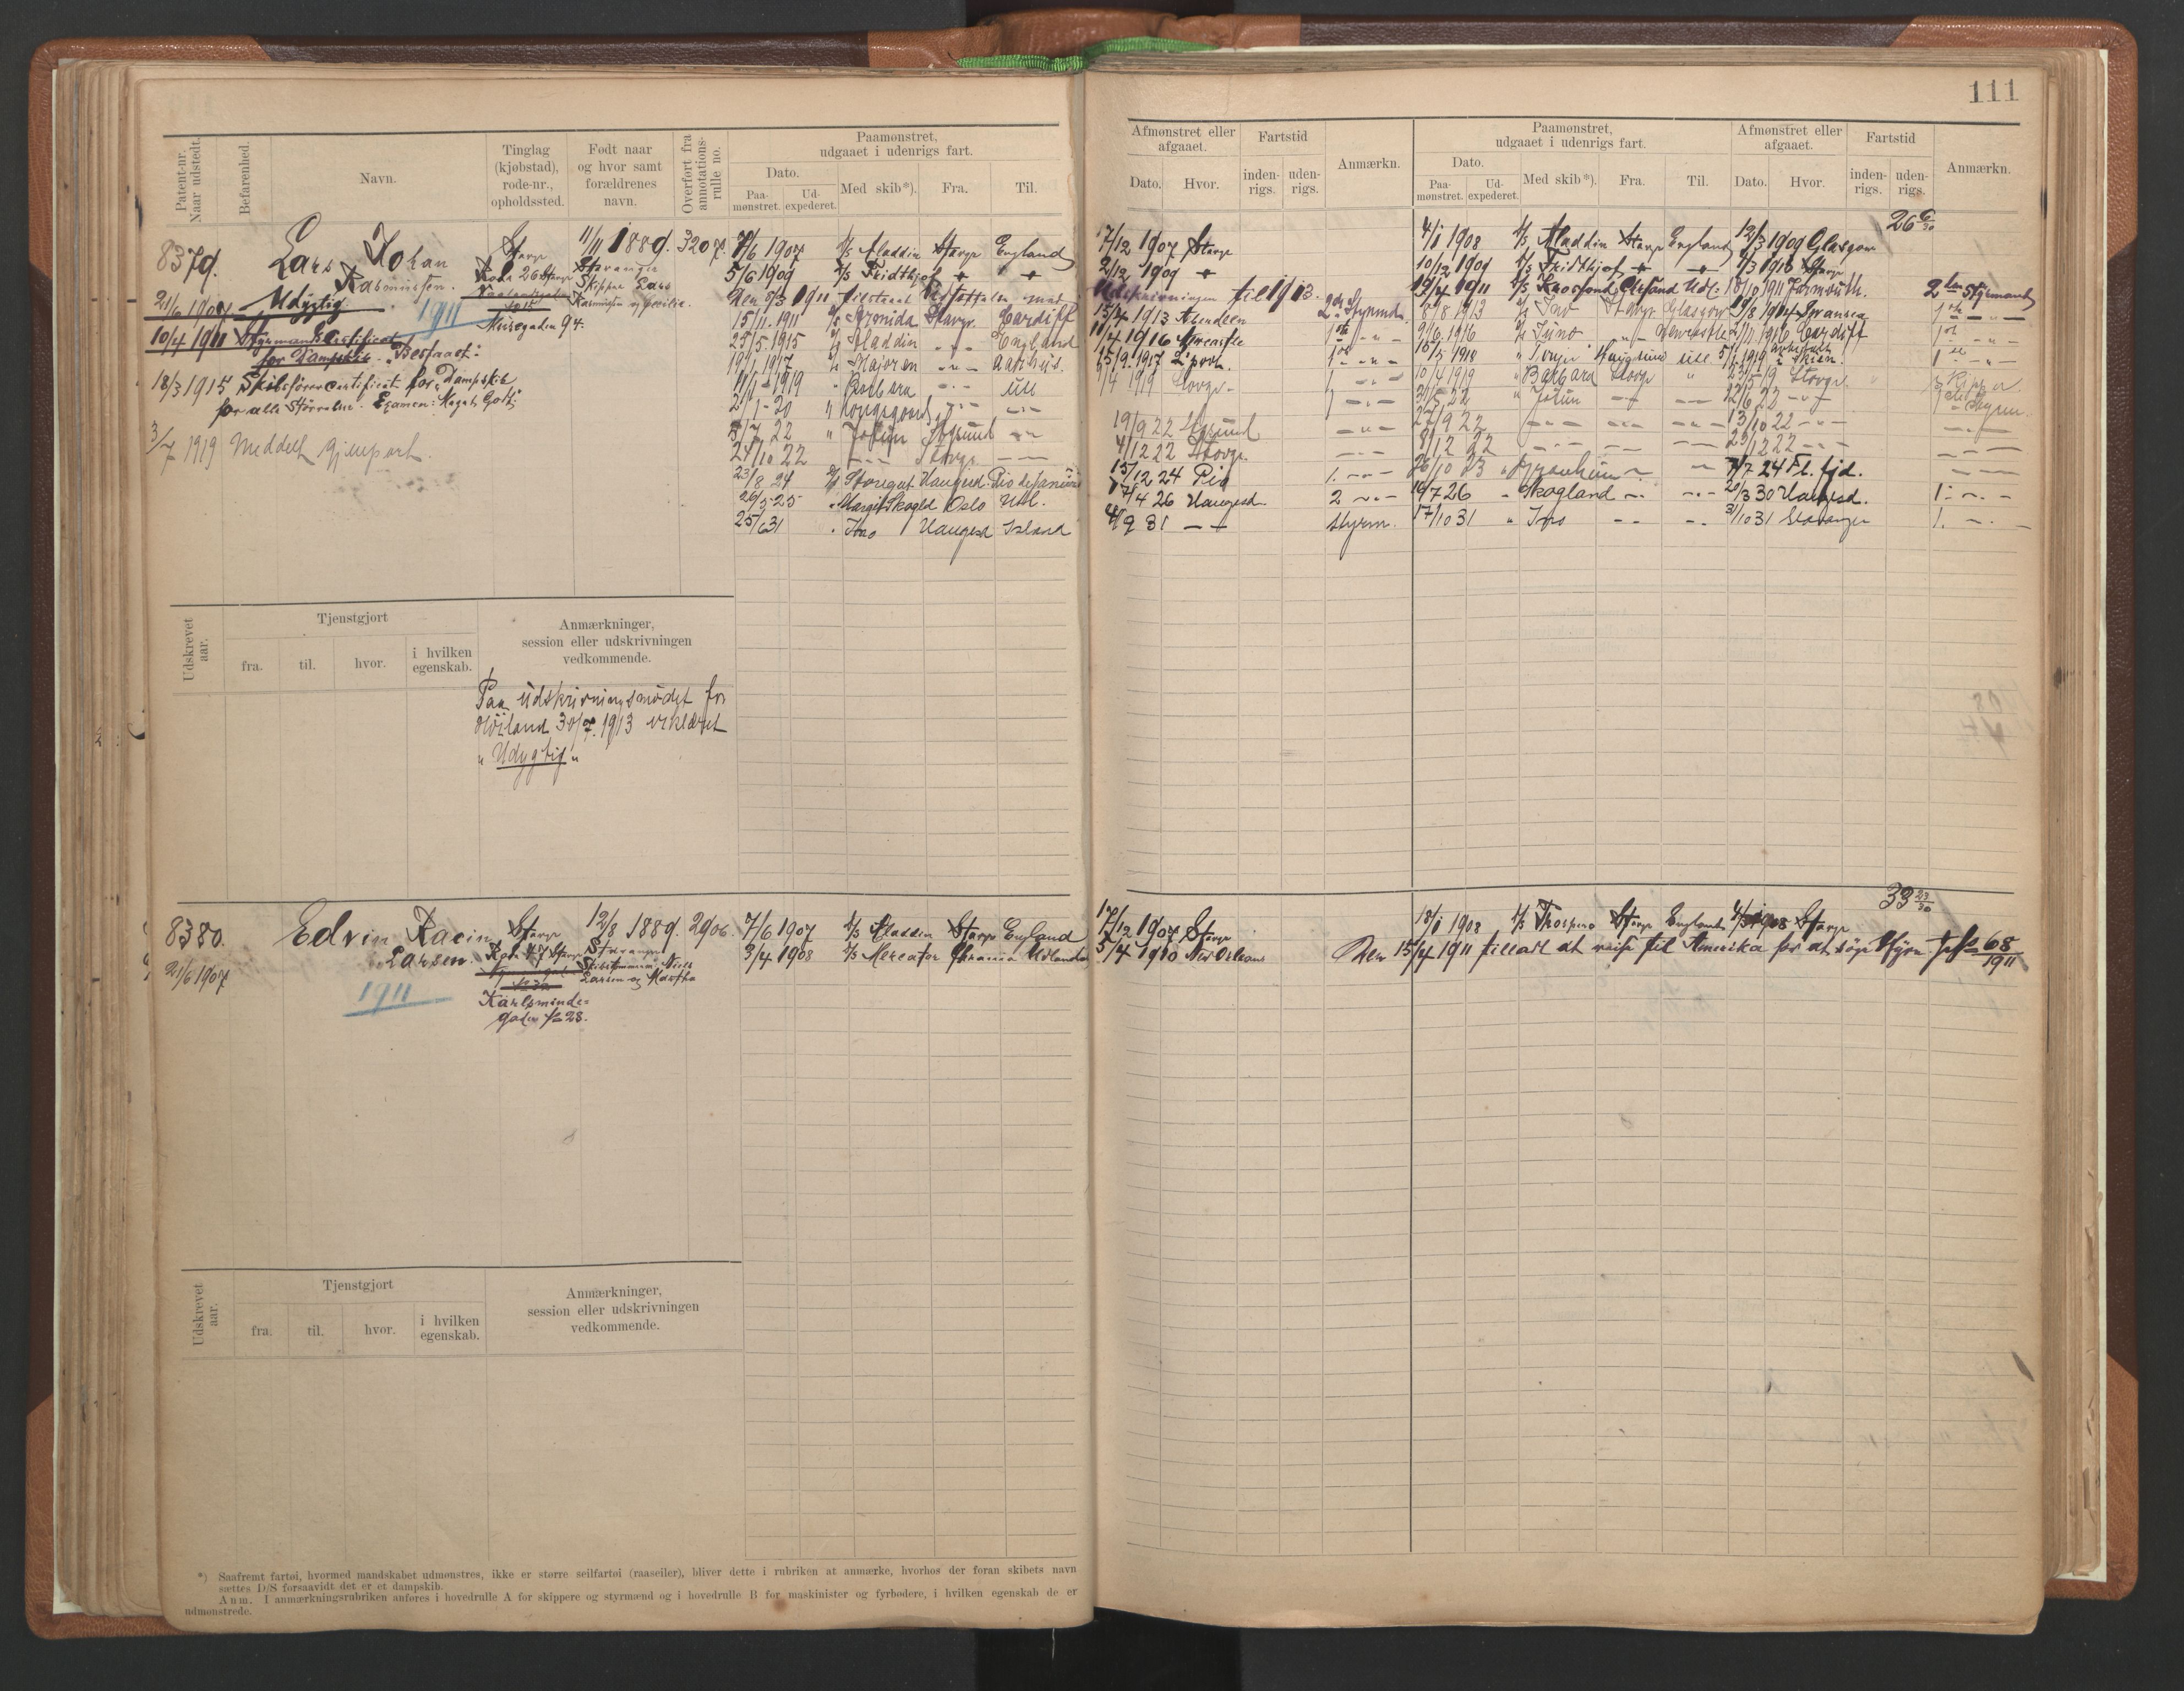 111
Patent-nr. Naar udstedt.
Befarenhed.
Navn.
Tinglag (kjøbstad), rode-nr., opholdssted.
Født naar og hvor samt forældrenes navn.
Overført fra annotations-rulle no.
Paamønstret, udgaaet i udenrigs fart.
Dato.
Paa-mønstret.
Ud-expederet.
Med skib*).
Fra.
Til.
Afmønstret eller afgaaet.
Dato.
Hvor.
Fartstid
inden-rigs.
uden-rigs.
Anmærkn.
Paamønstret, udgaaet i udenrigs fart.
Dato.
Paa-mønstret.
Ud-expederet.
Med skib*).
Fra.
Til.
Afmønstret eller afgaaet.
Dato.
Hvor.
Fartstid
inden-rigs.
uden-rigs.
Anmærkn.
8379. Lars Johan Rasmussen.
21/6 1907 Udygtig
1911
10/4 1911 Styrmands Certificat for Dampskib. "Bestaaet"
18/3 1915 Skibsførercertificat for Dampskib
for alle Størrelser. Examen: Meget Godt
3/7 1919 Meddelt Hjemport.
Stavgr
Rode 26 Stavgr
Nuiregaden 94.
11/11 1889.
Stavanger
Skipper Lars Rasmussen og Cecilie.
3207.
7/6 1907 D/S Aladdin Stavgr England
5/6 1909 D/S Fridthjof
Den 8/3 1911 tilstaaet Udsættelse med Udskrivningen til 1913.
15/11. 1911 D/S Kronida Stavgr. Cardiff
25/5. 1915 D/S Aladdin - " - England
19/1 1917 D/S Majoren - " - Aarhus.
11/1 - 1919 " Barbara - " - Udl
2/1 - 20 " Kongsgaard - " -
5/7 22 " Jotun Hgsund - " -
24/10 22 - " - Stavgr. - " -
23/8 24 D/S Storegut Haugesd. Rio de Janeiro
26/5 - 25 " Margit Skogld Oslo Udl.
25/6 31 " Ino Haugesd Island
17/12 1907 Stavgr
2/12 1909 - " -
13/4 1913 Aberdeen 2den Styrmd.
11/4 1916 Newcastle 1ste - " -
15/9. 1917 L'pool. 1ste - " -
1/4 1919 Stavgr.
19/9 22 Hgsund
4/12 22 Stavgr.
15/12 24 Rio 1. - " -
17/4 26 Haugesd. 2 - " -
4/9 31 - " - styrm.
26 6/30
4/1 1908 D/S Aladdin Stavgr England 12/3 1909 Glasgow
10/12 1909 D/S Fridthjof - " - - " - 1/3 1910 Stavgr
19/4 1911 D/S Krosfond Chrsand Udl: 18/10 1911 Falmouth. 2den Styrmand
8/8 1913 D/S Jao Stavgr Glasgow 19/8 1914 Swansea 1ste - " -
9/6 1916 D/S Juno - " - Newcastle 2/11 1916 Cardiff 1ste - " -
10/5 1918 " Haugsund Udl 5/1 1919 Skien. 1ste - " -
10/4 1919 " Barbara Stavgr " 23/5 19 Stavgr. Skipper
31/5 22 " Jotun - " - - " - 22/6 22 - " - Styrm.
27/9 22 - " - - " - - " - 13/10 22 - " -
8/12 22 - " - - " - - " - 23/12 22 - " -
26/10 23 - " - 7/7 24 Fl. fjd. - " -
16/7 26 " Skogland - " - - " - 20/3 30 Haugesd. 1. - " -
17/10 31 " Ino - " - - " - 31/10 31 Stavanger 1. - " -
Udskrevet aar.
Tjenstgjort
fra.
til.
hvor.
i hvilken egenskab.
Anmærkninger, session eller udskrivningen vedkommende.
Paa udskrivningsmødet for
Høiland 30/7. 1913 erklæret
"Udygtig"
8380. Edvin Racin Larsen.
21/6 1907
1911
Stavgr
Rode 47 Stavgr
Karlsminde-
gaden № 28.
12/8 1889.
Stavanger
Skibstømmermd. Niels
Larsen og Martha
2906.
7/6 1907 D/S Aladdin Stavgr England
3/4 1908 D/S Mercator Chrania Udlandet
17/12 1907 Stavgr
5/4 1910 New Orleans
33 23/30
18/1 1908 D/S Prospero Stavgr England 4/3 1908 Stavgr
Den 15/4 1911 tilladt at reise til Amerika for at søge Hyre J. № 68/1911
Udskrevet aar.
Tjenstgjort
fra.
til.
hvor.
i hvilken egenskab.
Anmærkninger, session eller udskrivningen vedkommende.
*) Saafremt fartøi, hvormed mandskabet udmønstres, ikke er større seilfartøi (raaseiler), bliver dette i rubriken at anmærke, hvorhos der foran skibets navn
sættes D/S forsaavidt det er et dampskib.
Anm. I anmærkningsrubriken anføres i hovedrulle A for skippere og styrmænd og i hovedrulle B for maskinister og fyrbødere, i hvilken egenskab de er
udmønstrede.